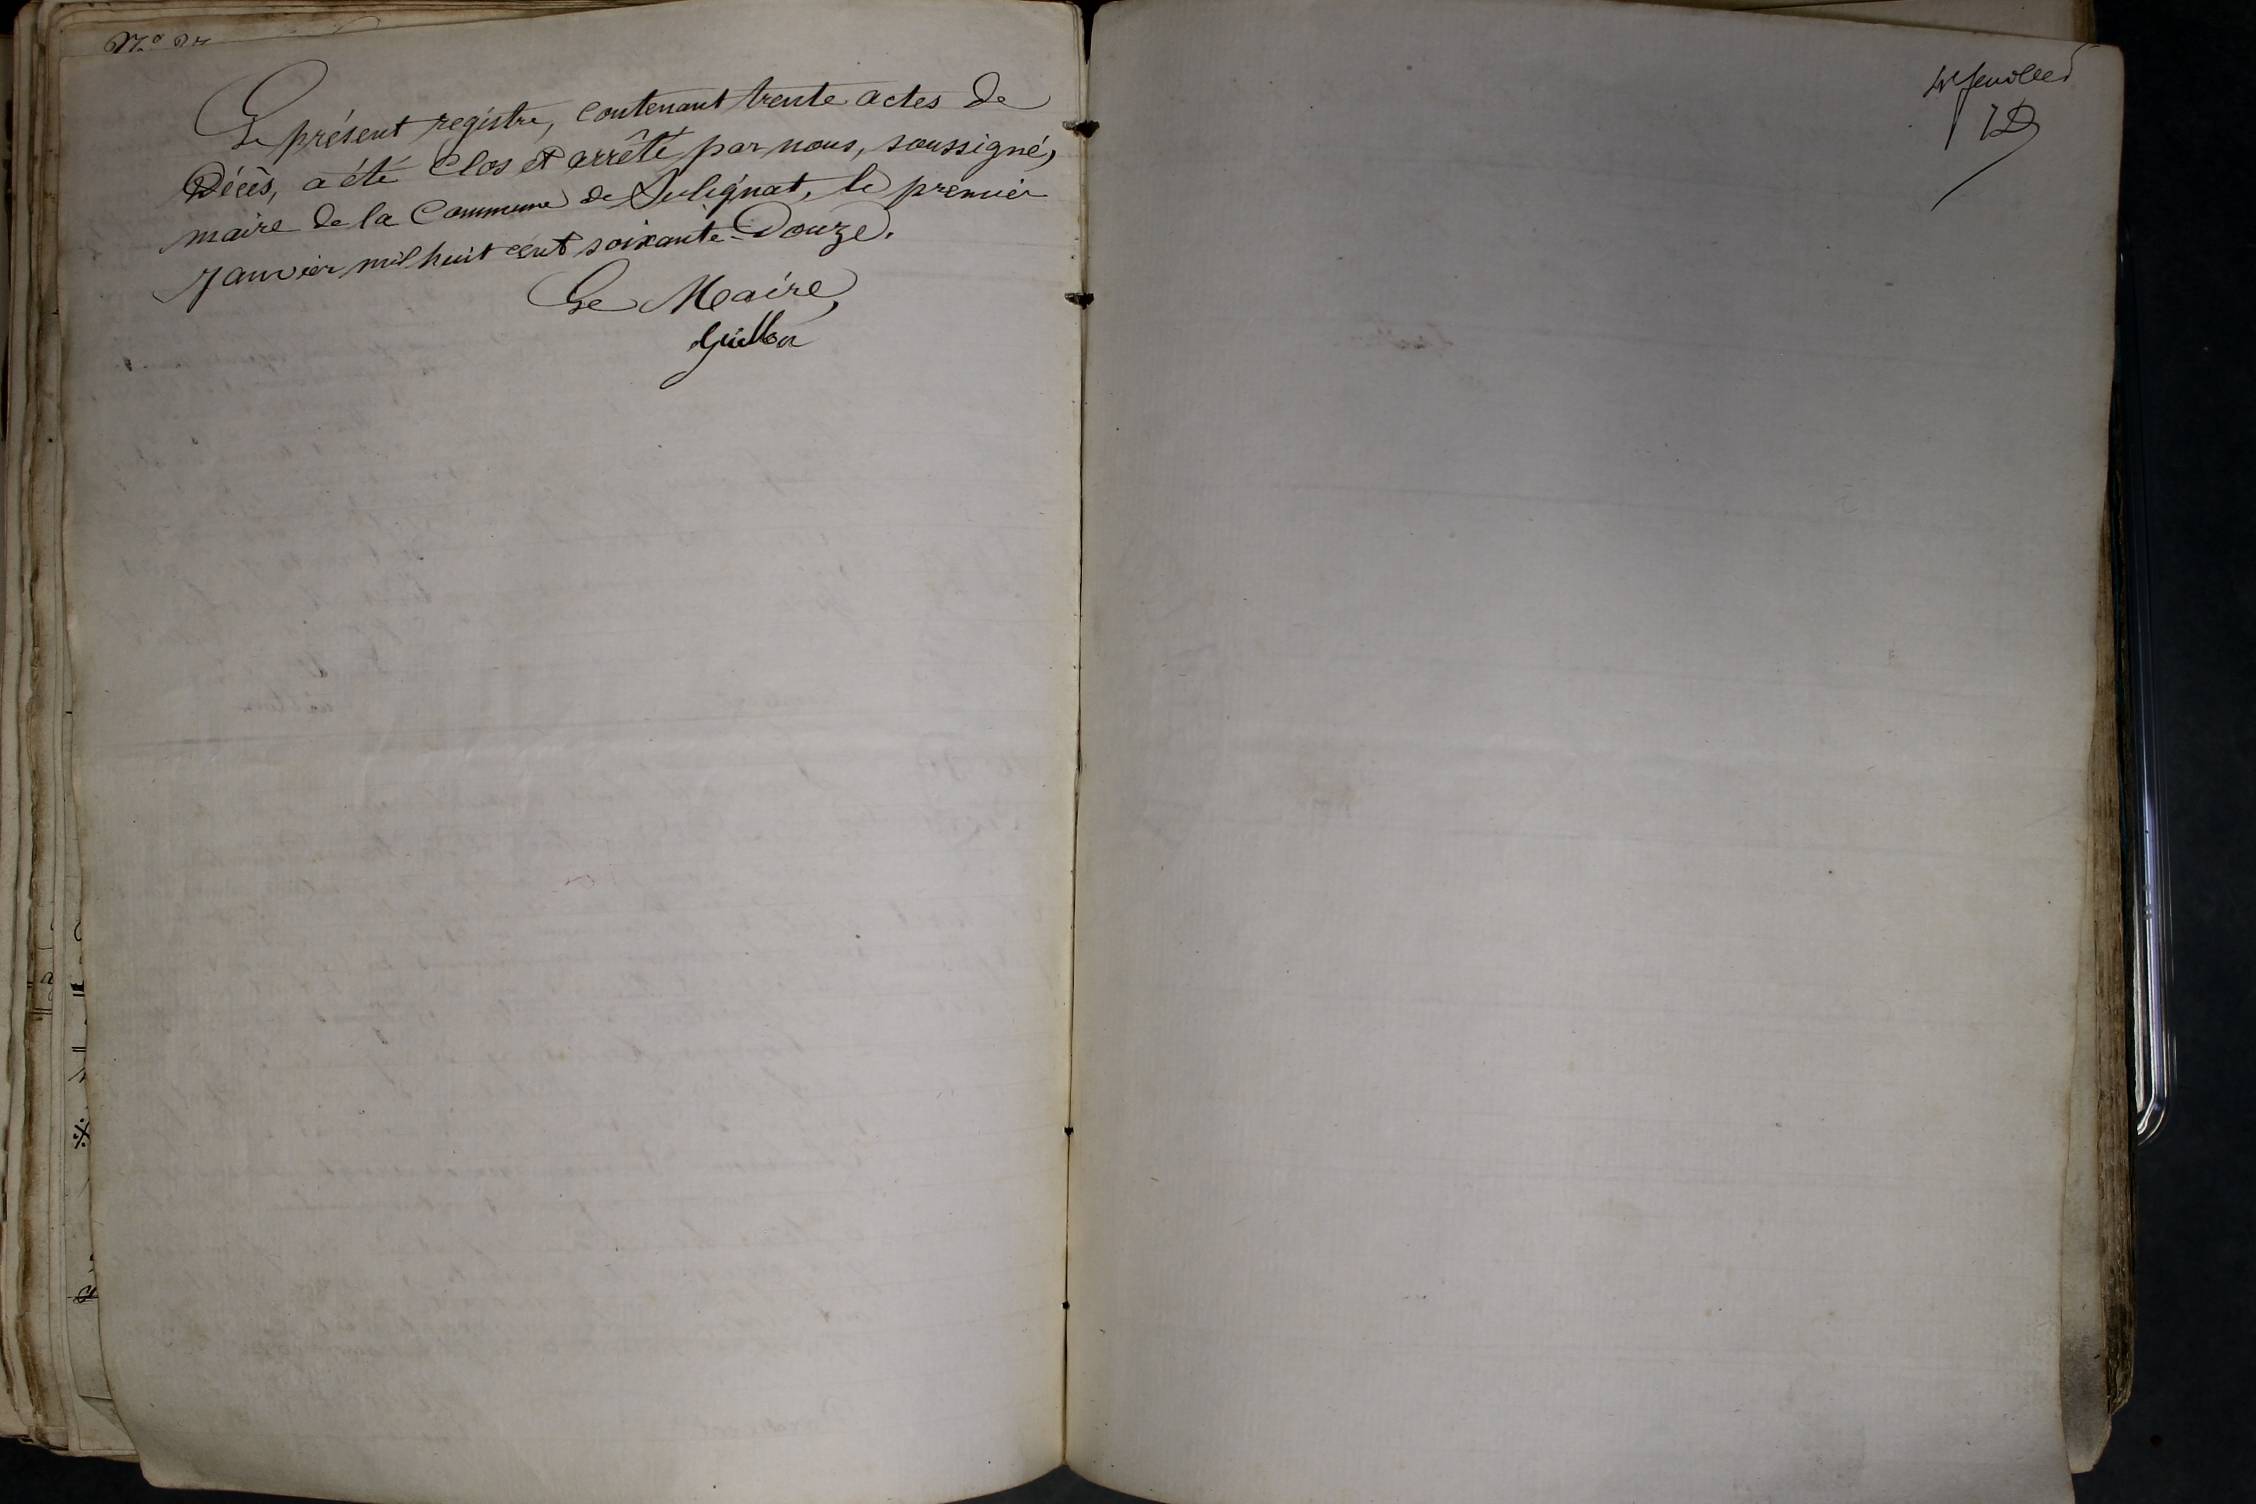 Le présent registre, contenant trente actes de
Décès, a été clos et arrêté par nous, soussigné,
maire de la Commune de Sulignat, le premier
Janvier mil huit cent soixante-Douze.
Le Maire,
Guillon